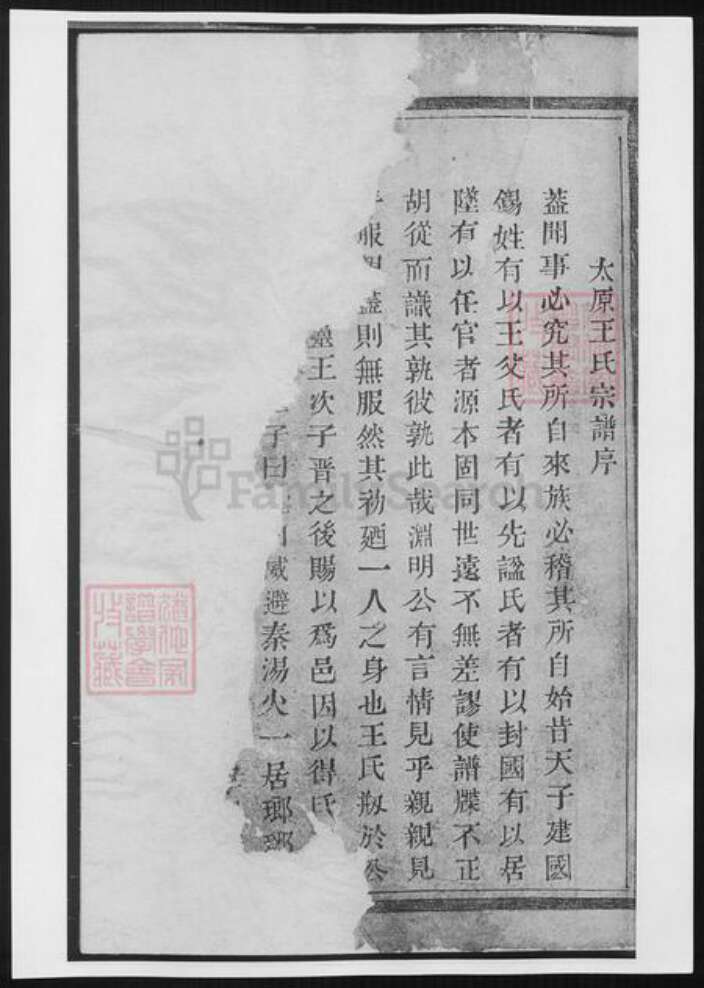 太原王氏宗譜序
蓋聞事必究其所自來族必稽其所自始昔天子建國
錫姓有以王父氏者有以先謚氏者有以封國有以居
墜有以任官者源本固同世遠不無差謬使譜牒不正
胡從而識其孰彼孰此哉淵明公有言情見乎親親見
服 盡則無服然其初廼一人之身也王氏㓝於公
靈王次子晋之後賜以爲邑因以得氏
子曰 威避秦湯火一居瑯琊
譜學會
收藏
FamilySearch